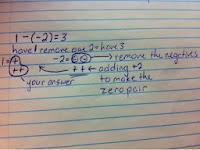 1 - (-2) = 3
have 1 remove one 2 = have 3
1 = + -2 = - - → remove the negatives
++ ++ ← adding +2
your answer to make the
zero pair